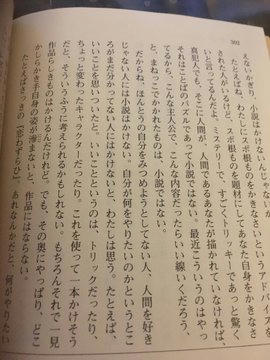 302
えないかぎり、小説はかけないんじゃないか。
たとえばね、わたしにスポ根ものをかきなさいというアドバイスを
された人がいるけど、スポ根ものを題材にしてあなた自身をかきなさ
いと言ってるんだよ。ミステリーで、すごくトリッキーであっと驚く
真犯人でも、そこに人間が、人間であるあなたが描かれていなければ、
それはことばのパズルであって小説ではない。最近こういうのはやっ
てるから、こんな主人公で、こんな内容だったらいい線いくだろう、
と、まねっこでかかれたものは、小説ではない。
だからね、ほんとうの自分をみつめようとしない人、人間を好き
じゃない人には小説はかけない。自分が何をやりたいのかというとこ
ろがまだ分かってない人にはかけないと、わたしは思う。たとえば、
いいことを思いついたと、いいことというのは、トリックだったり、
ちょっと変わったキャラクターだったり。これを使って一本かけそう
だと、そういうふうに考えられるかもしれない。もちろんそれで一見
作品らしきものはかけるんだけれど、でも、その奥にやっぱり、どこ
かしらかき手自身の姿が滲まないと、作品にはならない。
たとえばさっきの「恋わずらひ」、あれなんかだと、何がやりたい